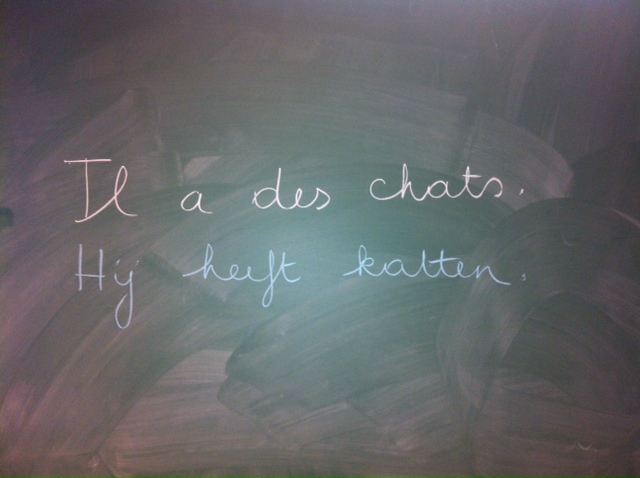 Il a des chats.
Hij heeft katten.